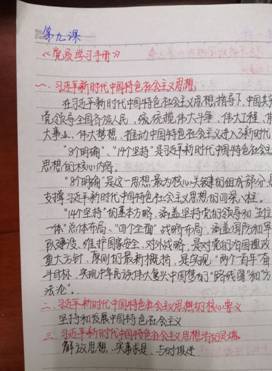 第九课
《党员学习手册》
一、习近平新时代中国特色社会主义思想
在习近平新时代中国特色社会主义思想指导下,中国共
党领导全国各族人民,统揽伟大斗争、伟大工程、
大事业、伟大梦想,推动中国特色社会主义进入新时代
"8个明确"、"14个坚持"是习近平新时代中国特色社会
思想的核心内容。
"8个明确"是这一思想最为核心关键的组成部分,是
支撑习近平新时代中国特色社会主义思想的四梁八柱。
"14个坚持"的基本方略,涵盖坚持党的领导和"五位
一体"总体布局、"四个全面"战略布局,涵盖国防和军
队建设、维护国家安全、对外战略,是对党的治国理政
重大方针、原则的最新概括,是实现"两个一百年"奋
斗目标,实现中华民族伟大复兴中国梦的"路线图"和"方
法论"。
二、习近平新时代中国特色社会主义思想的核心要义
坚持和发展中国特色社会主义
三、习近平新时代中国特色社会主义思想
解放思想、实事求是、与时俱进